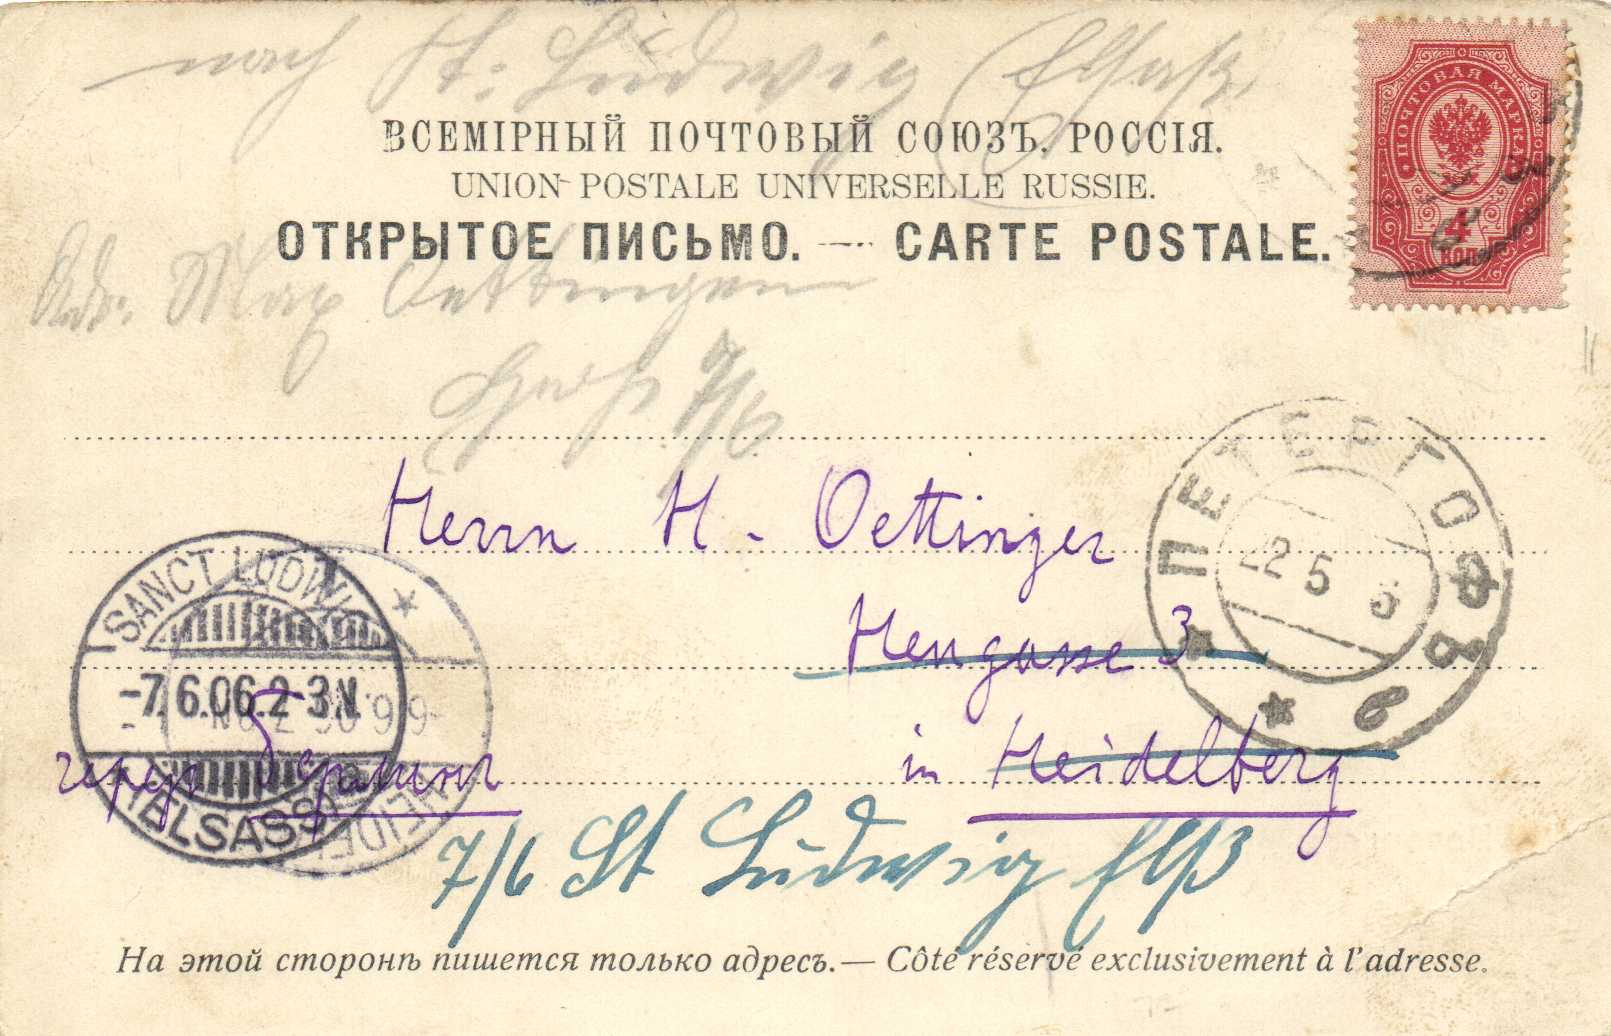 nach St. Ludwig Elsaß.
ПОЧТОВАЯ МАРКА
4
КОП.
ВСЕМІРНЫЙ ПОЧТОВЫЙ СОЮЗЪ. РОССІЯ.
UNION POSTALE UNIVERSELLE RUSSIE.
ОТКРЫТОЕ ПИСЬМО. — CARTE POSTALE.
Adr: Max Oettinger
7/6
Herrn H. Oettinger
ПЕТЕРГОФЪ
22 5 6
в
in Heidelberg
SANCT LUDWIG
-7.6.06.2-3N.
(ELSASS)
черезъ Берлинъ
7/6 St Ludwig Elß
На этой сторонѣ пишется только адресъ.— Côté réservé exclusivement à l'adresse.